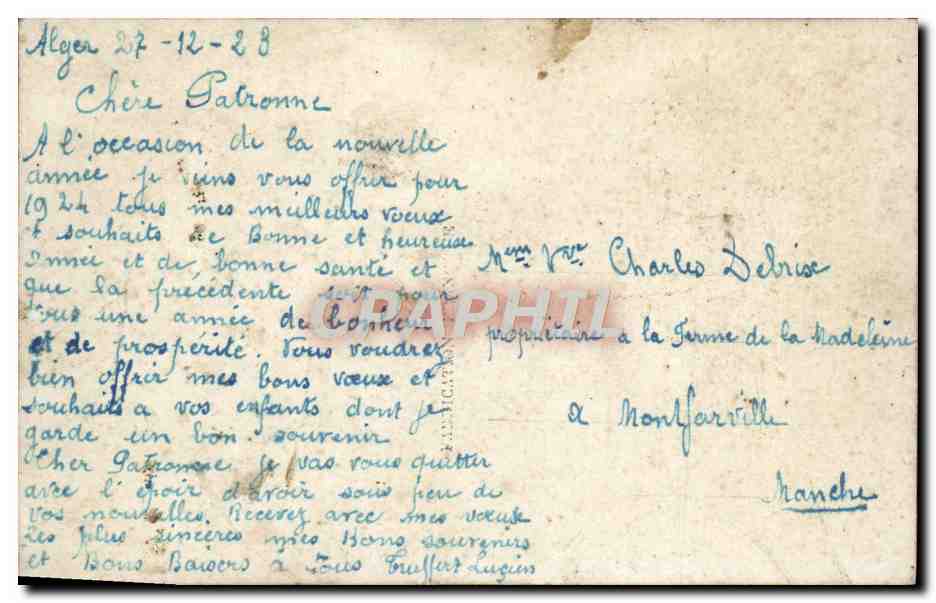 Alger 27-12-23
Chère Patronne
A l'occasion de la nouvelle
année je viens vous offrir pour
1924 tous mes meilleurs vœux
et souhaits de Bonne et heureuse
année et de bonne santé et
que la précédente soit pour
vous une année de bonheur
et de prospérité. Vous voudrez
bien offrir mes bons vœux et
souhaits a vos enfants dont je
garde un bon souvenir
Cher Patronne je vas vous quitter
avec l'époir d'avoir sous peu de
vos nouvelles. Recevez avec mes vœux
Les plus sincères mes Bons souvenirs
et Bons Baisers à Tous Truffert Lucien
Mem Vve Charles Debrix
propriétaire a la Ferme de la Madeleine
a Montfarville
Manche
CPAPHIL
FABRICATION